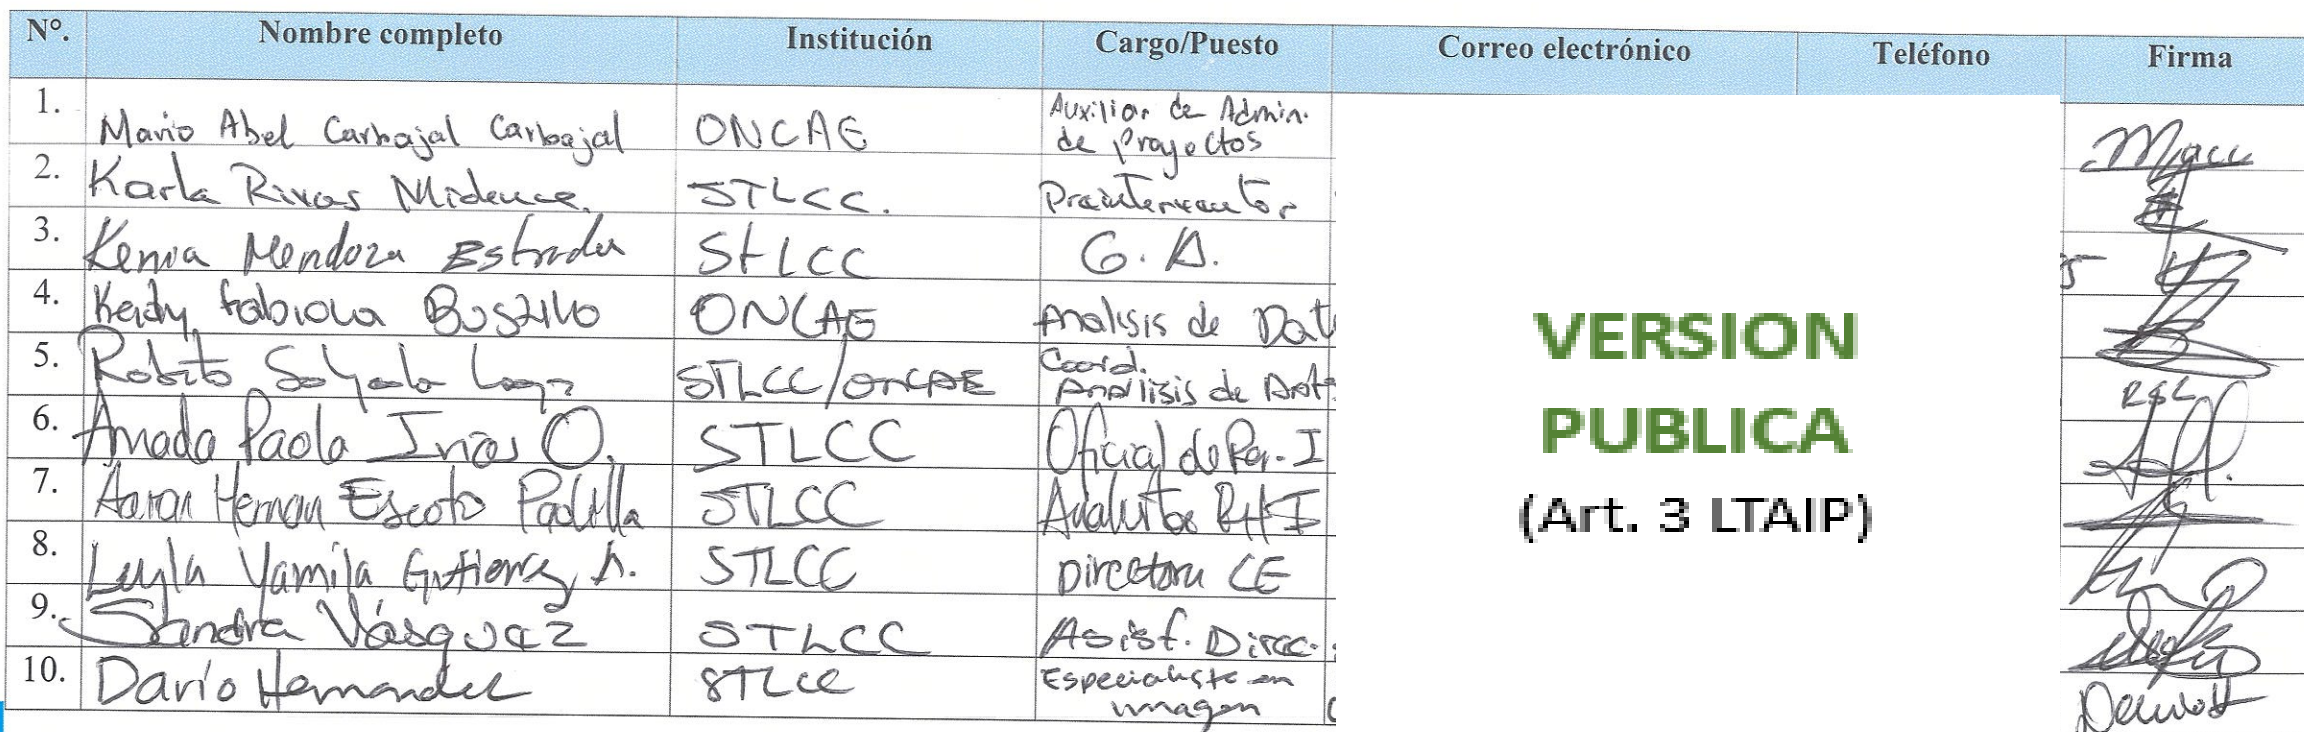 N°. Nombre completo Institución Cargo/Puesto Correo electrónico Teléfono Firma
1. Mario Abel Carbajal Carbajal ONCAE Auxiliar de Admin. de Proyectos
2. Karla Rivas Midence. STLCC. Preinterventor
3. Kenia Mendoza Estrada STLCC G. A.
4. Keidy Fabiola Bustillo ONCAE Analisis de Dat
5. Roberto Salgado STLCC/ONCAE Coord. Análisis de Dat
6. Amada Paola Irias O. STLCC Oficial de Per. I
7. Aaron Hernan Escoto Padilla STLCC Analista RH I
8. Leyla Yamila Gutierrez A. STLCC Directora CE
9. Sandra Vásquez STLCC Asist. Direc.
10. Darío Hernandez STLCC Especialista en imagen
VERSION
PUBLICA
(Art. 3 LTAIP)
RSL